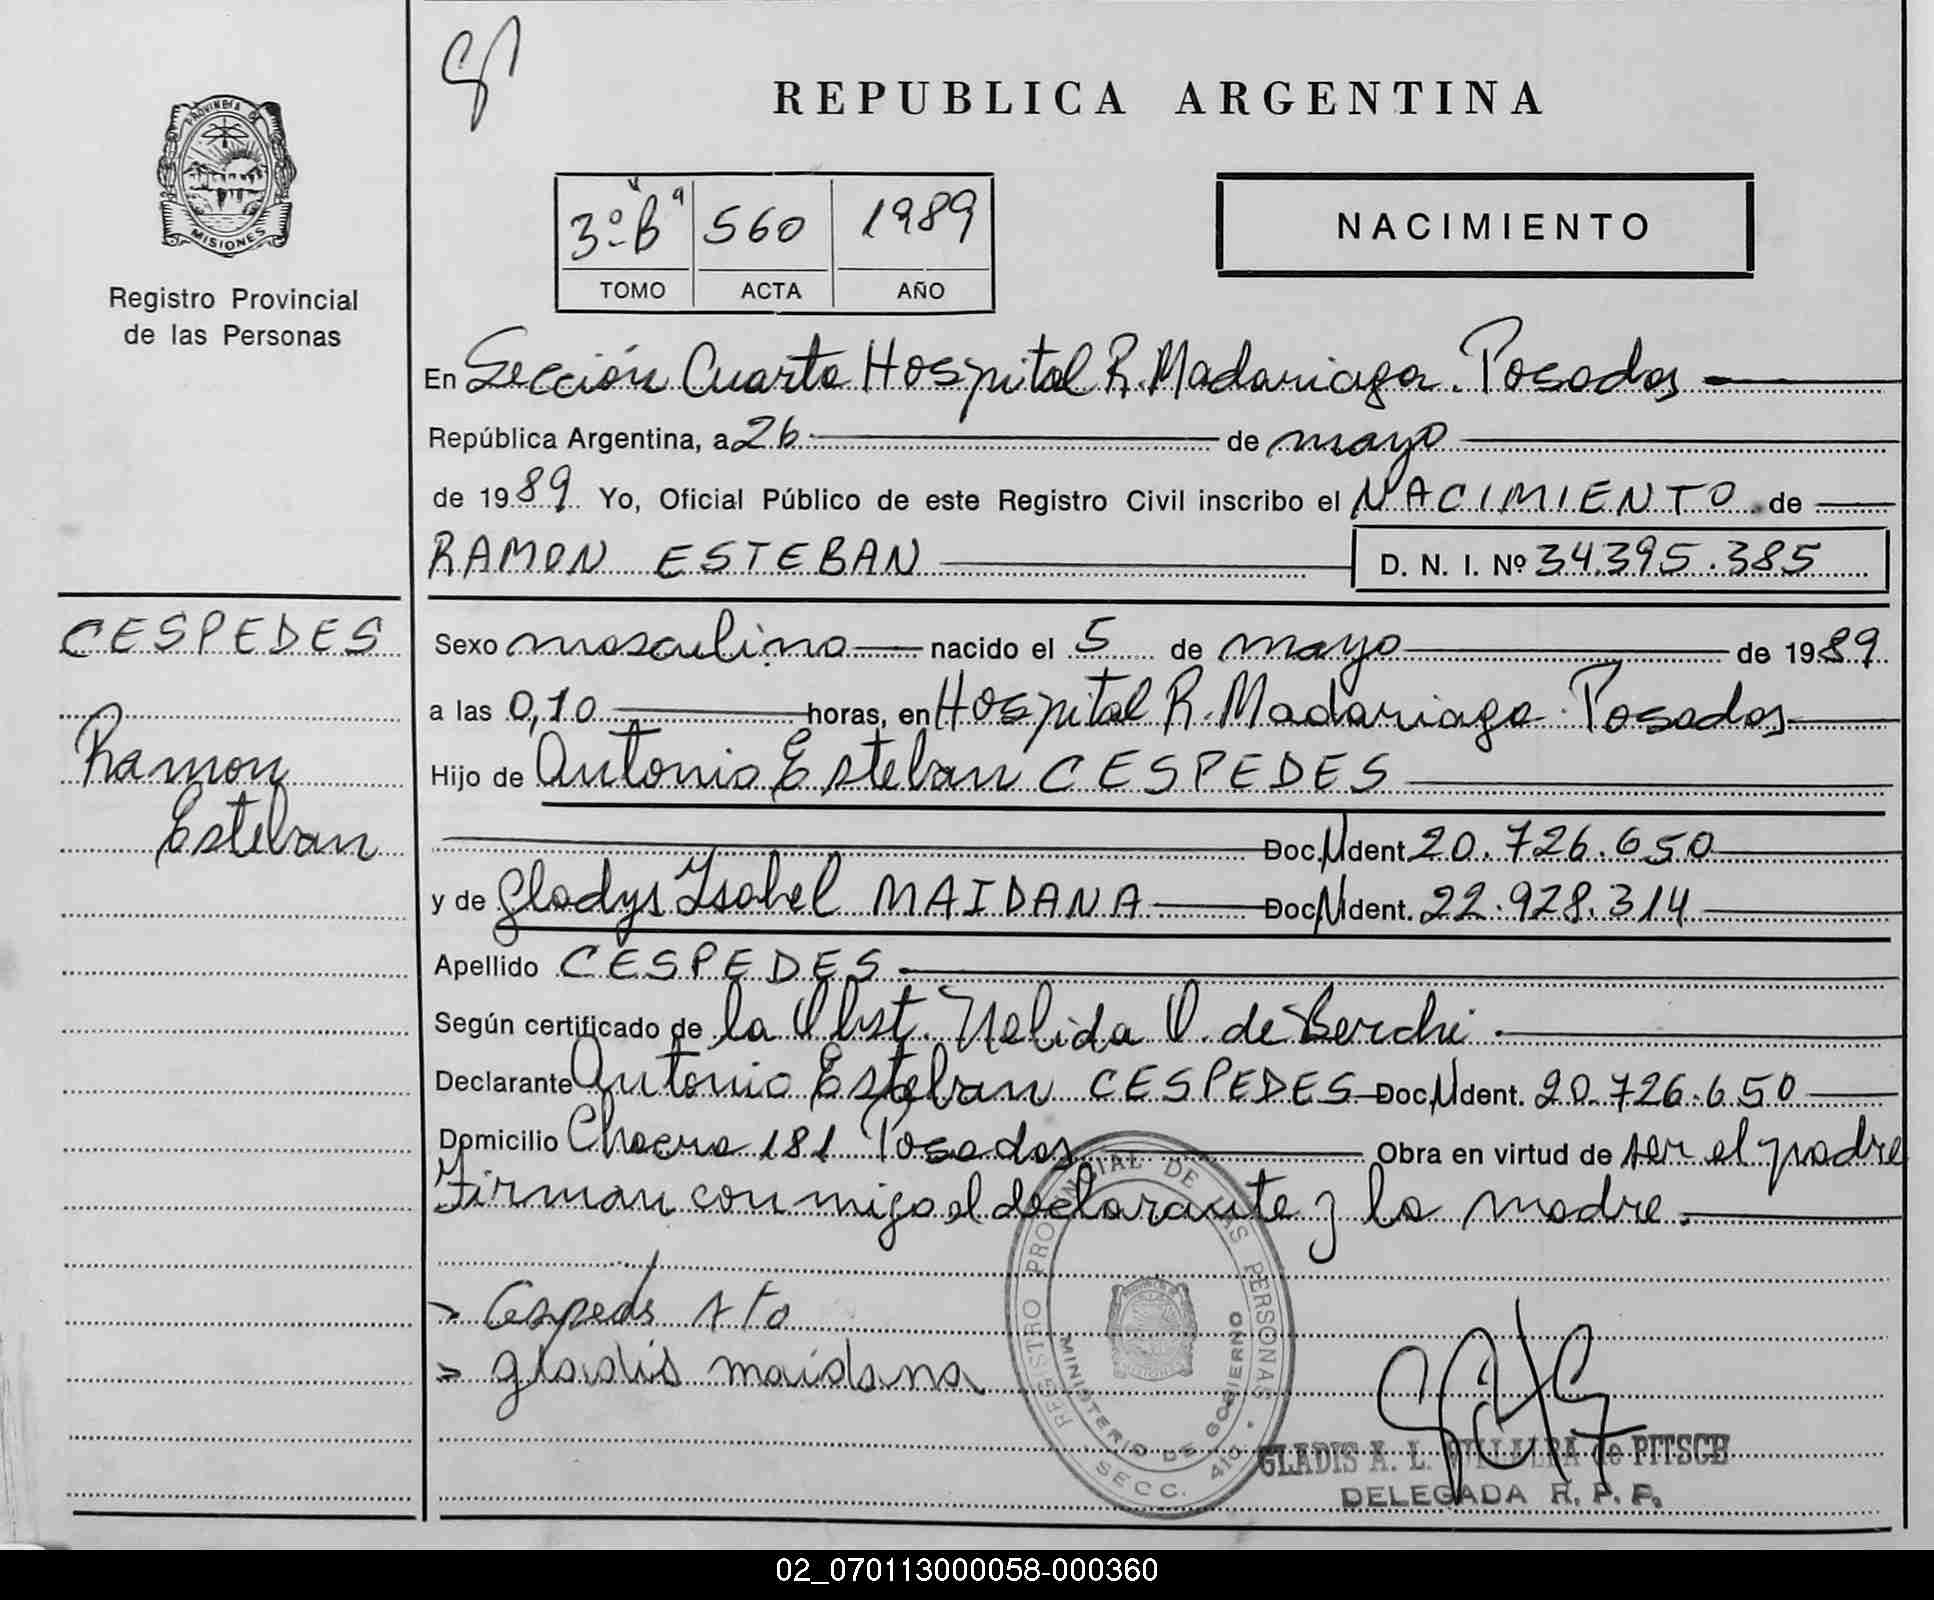 REPUBLICA ARGENTINA
PROVINCIA DE
MISIONES
Registro Provincial
de las Personas
3º B 560 1989
TOMO ACTA AÑO
NACIMIENTO
En Sección Cuarta Hospital R. Madariaga. Posadas
República Argentina, a 26 de mayo
de 1989 Yo, Oficial Público de este Registro Civil inscribo el NACIMIENTO de
RAMON ESTEBAN D. N. I. Nº 34.395.385
CESPEDES
Ramon
Esteban
Sexo masculino nacido el 5 de mayo de 1989
a las 0,10 horas, en Hospital R. Madariaga. Posadas
Hijo de Antonio Esteban CESPEDES
Doc. N Ident 20.726.650
y de Gladys Isabel MAIDANA Doc N Ident. 22.928.314
Apellido CESPEDES
Según certificado de la Obst. Nelida O. de Berchi.
Declarante Antonio Esteban CESPEDES Doc N Ident. 20.726.650
Domicilio Chacra 181 Posadas Obra en virtud de ser el padre
Firman conmigo el declarante y la madre.
Cespeds
gladis maidana
REGISTRO PROVINCIAL DE LAS PERSONAS
MINISTERIO DE GOBIERNO
SECC. 410
GLADIS A. L. VILLALBA de PITSCH
DELEGADA R. P. P.
02_070113000058-000360